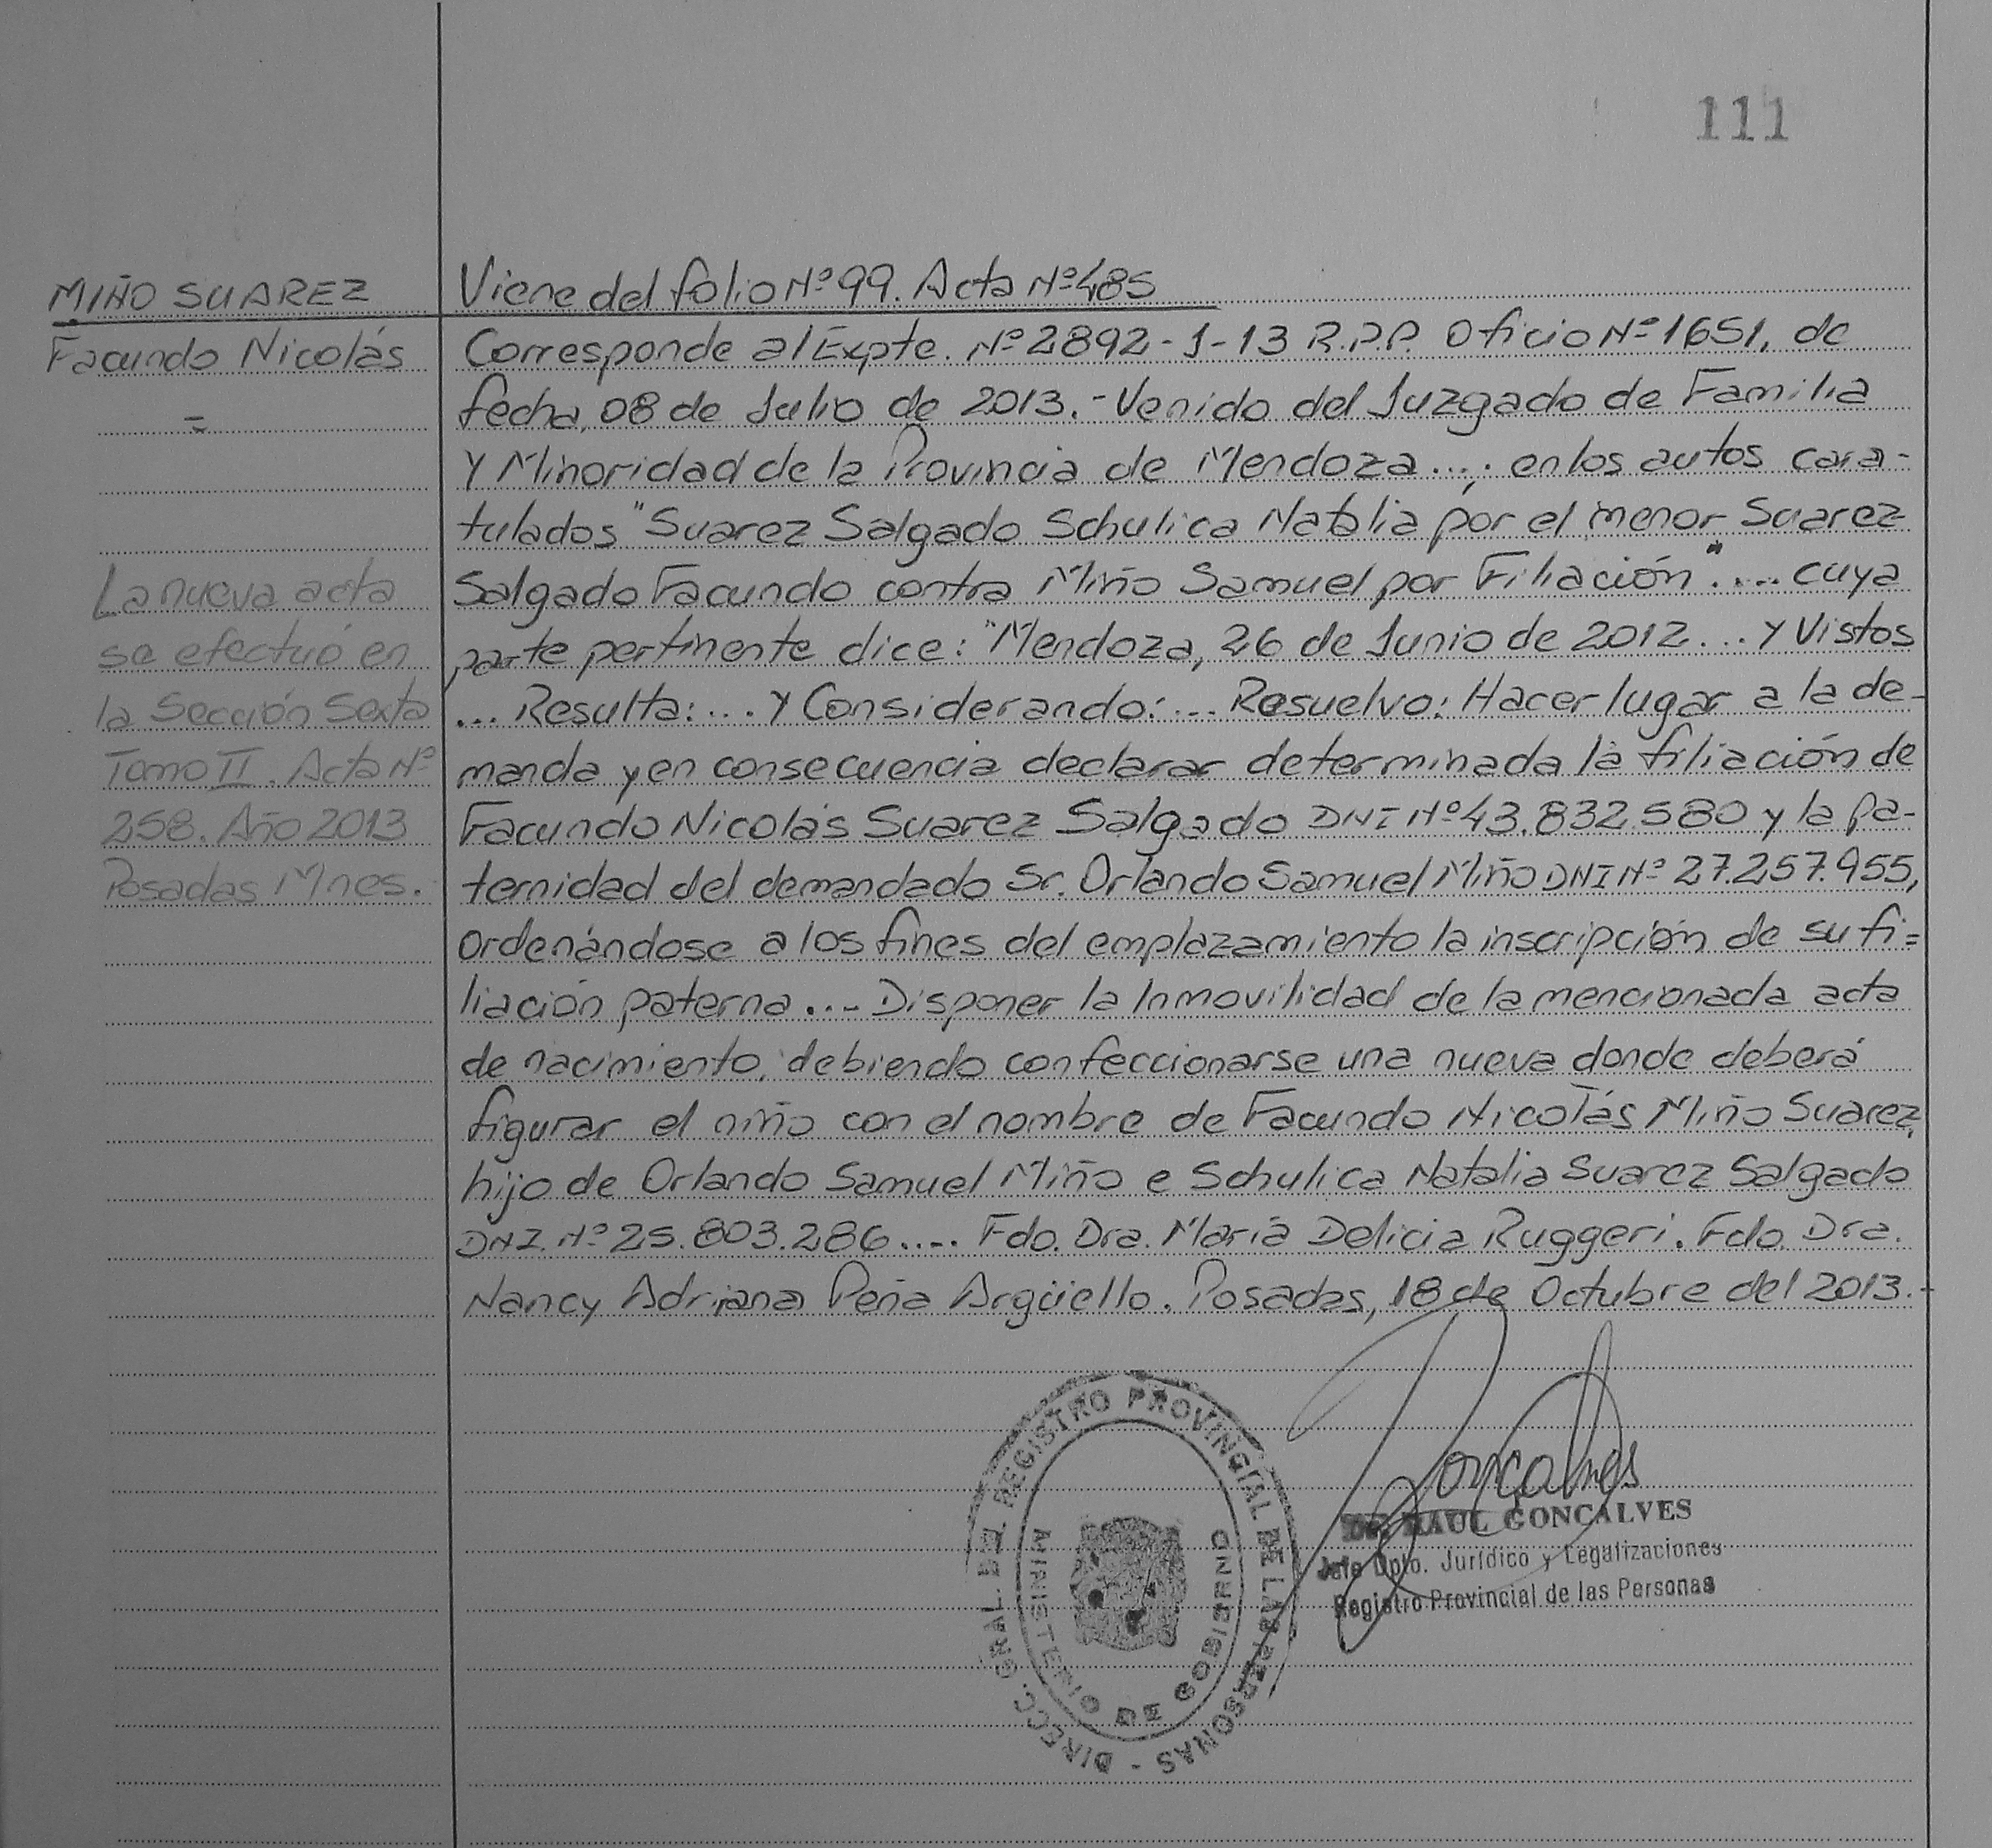 111
MIÑO SUAREZ
Facundo Nicolás
=
La nueva acta
se efectuó en
la Sección Sexta
Tomo II. Acta Nº
258. Año 2013
Posadas Mnes.
Viene del folio Nº 99. Acta Nº 485
Corresponde al Expte. Nº 2892-1-13 R.P.P. Oficio Nº 1651, de
fecha, 08 de Julio de 2013.- Venido del Juzgado de Familia
y Minoridad de la Provincia de Mendoza...; en los autos cara-
tulados "Suarez Salgado Schulica Natalia por el menor Suarez
Salgado Facundo contra Miño Samuel por Filiación".... cuya
parte pertinente dice: "Mendoza, 26 de Junio de 2012... y Vistos
... Resulta:... y Considerando:... Resuelvo: Hacer lugar a la de-
manda y en consecuencia declarar determinada la filiación de
Facundo Nicolás Suarez Salgado DNI Nº 43.832.580 y la pa-
ternidad del demandado Sr. Orlando Samuel Miño DNI Nº 27.257.955,
ordenándose a los fines del emplazamiento la inscripción de su fi=
liación paterna... Disponer la Inmovilidad de la mencionada acta
de nacimiento, debiendo confeccionarse una nueva donde deberá
figurar el niño con el nombre de Facundo Nicolás Miño Suarez,
hijo de Orlando Samuel Miño e Schulica Natalia Suarez Salgado
DNI. Nº 25.803.286.... Fdo. Dra. María Delicia Ruggeri. Fdo. Dra.
Nancy Adriana Peña Argüello. Posadas, 18 de Octubre del 2013.-
DIRECC. GRAL. DEL REGISTRO PROVINCIAL DE LAS PERSONAS -
MINISTERIO DE GOBIERNO
Gonçalves
Dr. RAUL GONCALVES
Jefe Dpto. Jurídico y Legalizaciones
Registro Provincial de las Personas